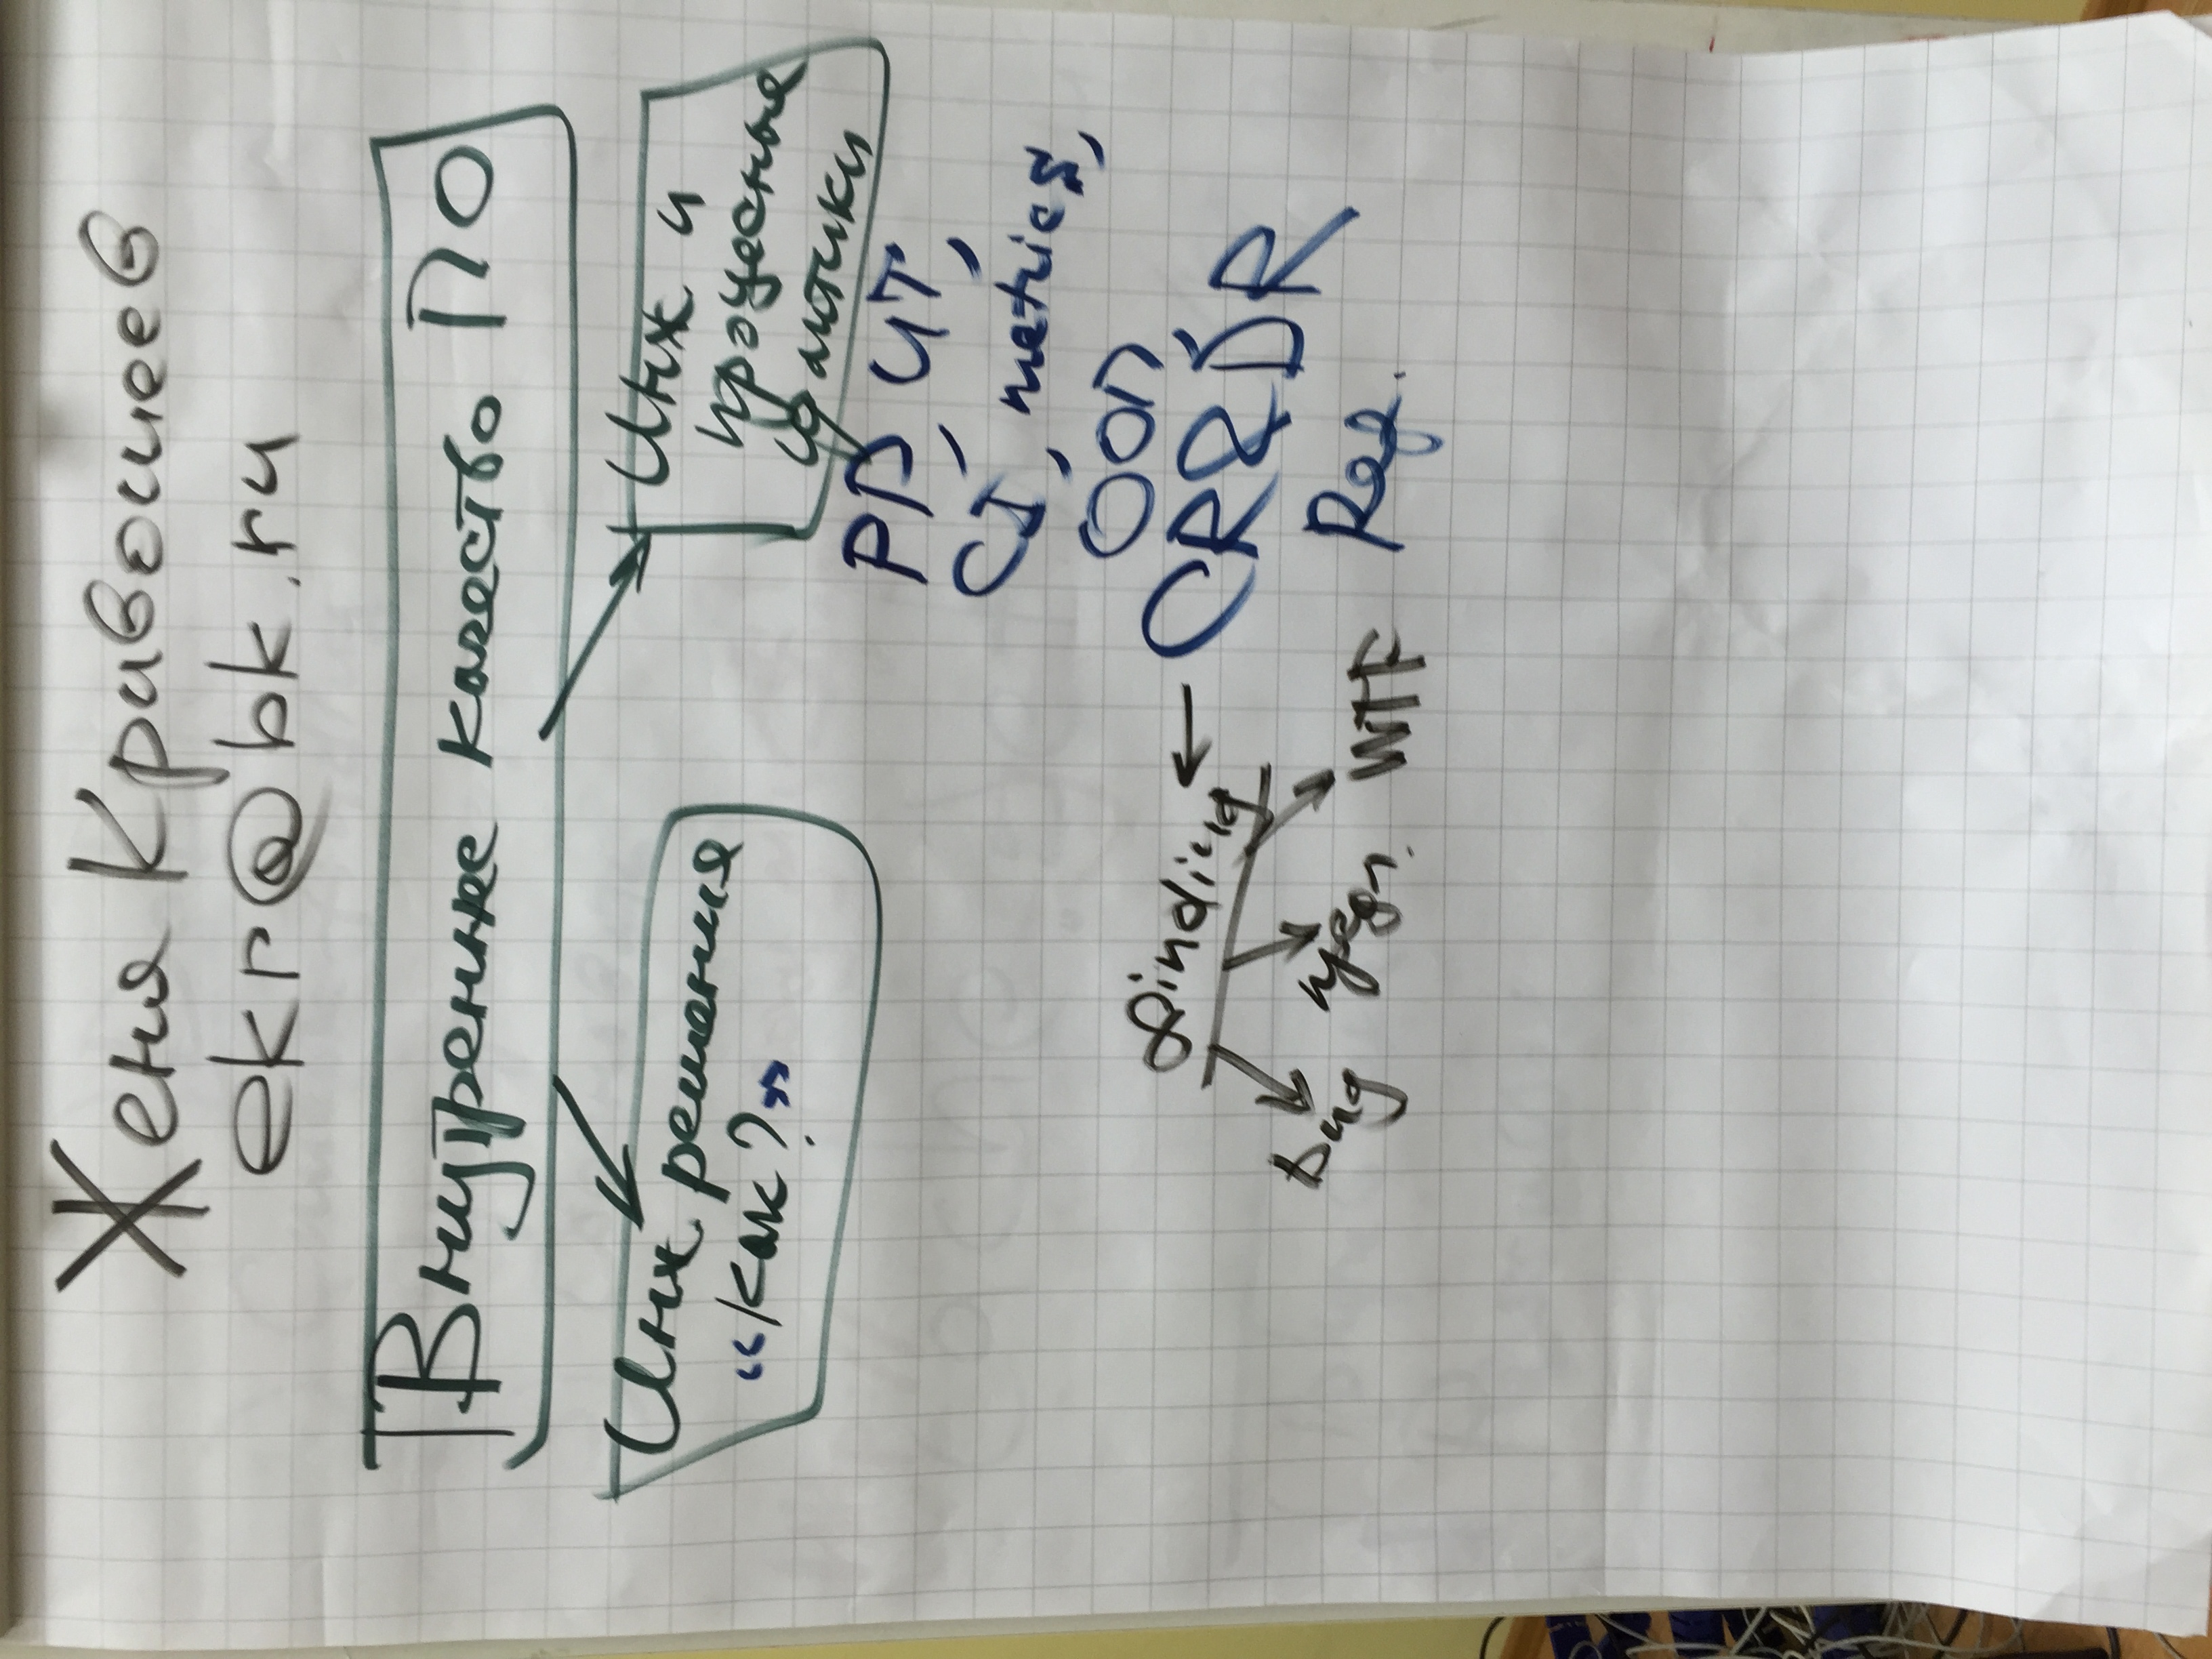 Женя Кривошеев
ekr@bk.ru
Внутреннее качество ПО
Инж решения
“Как?”
Инж и
процесные
практики
PP, UT,
CI, metrics,
ООП,
CR&DR
Ref.
Finding
Bug
предл.
WTF